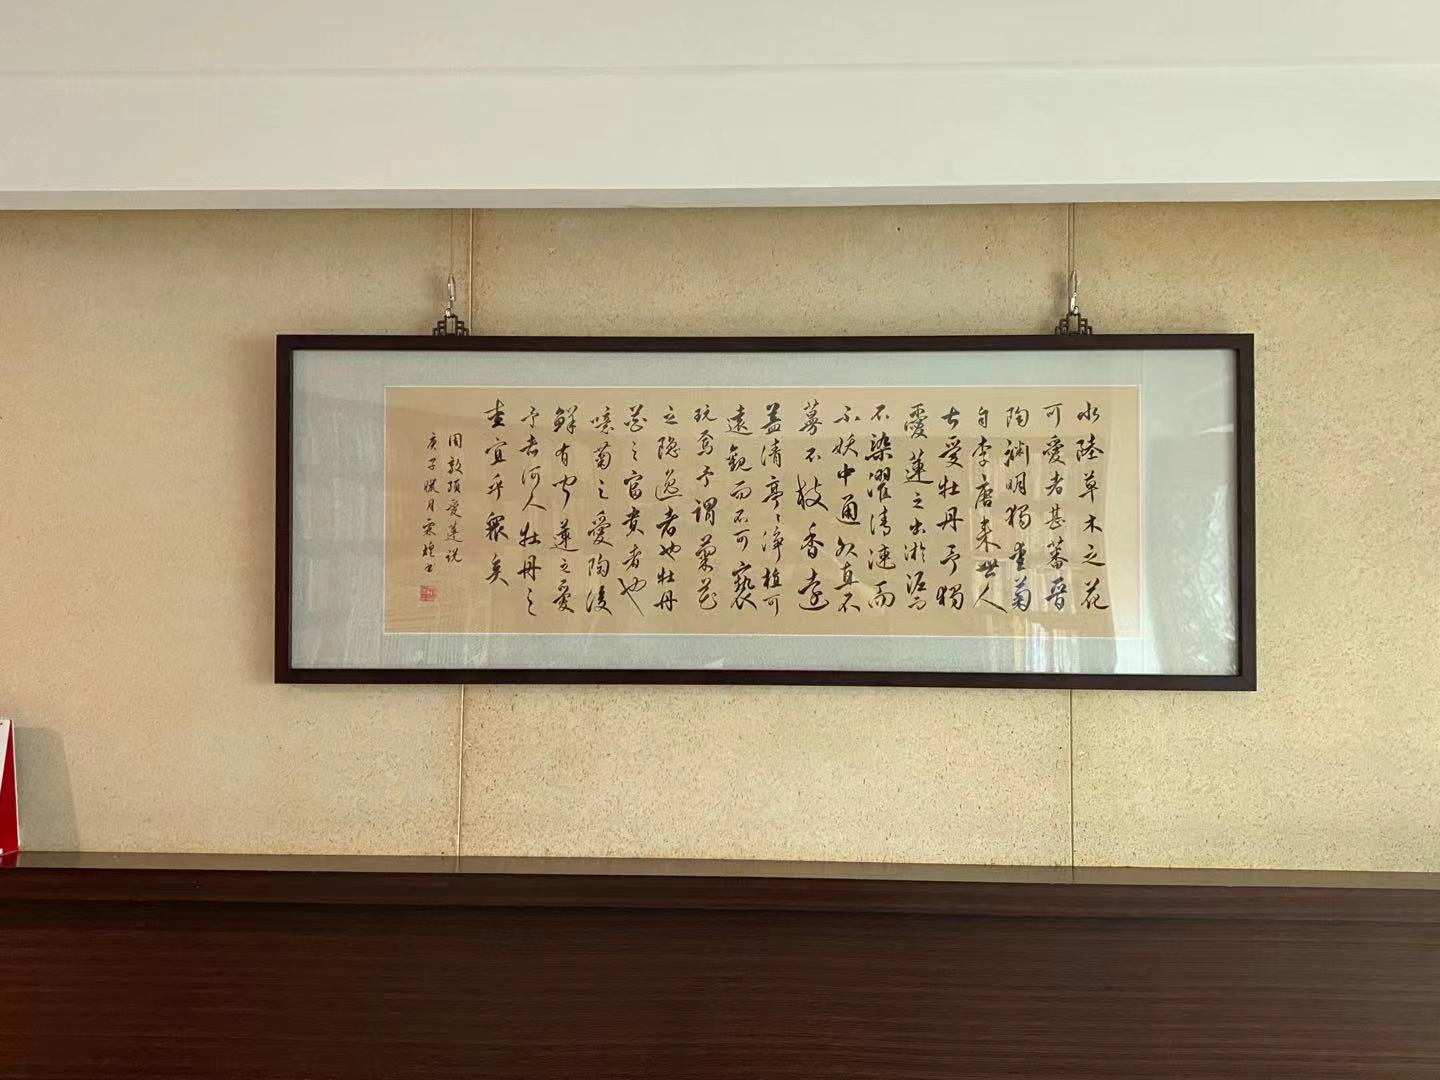 水陸草木之花
可愛者甚蕃晉
陶淵明獨愛菊
自李唐来世人
甚愛牡丹予獨
愛蓮之出淤泥而
不染濯清涟而
不妖中通外直不
蔓不枝香遠
益清亭亭净植可
遠觀而不可褻
玩焉予謂菊花
之隐逸者也牡丹
花之富貴者也
噫菊之愛陶後
鮮有聞蓮之愛
予者何人牡丹之
愛宜乎眾矣
周敦頤愛莲说
庚子臘月